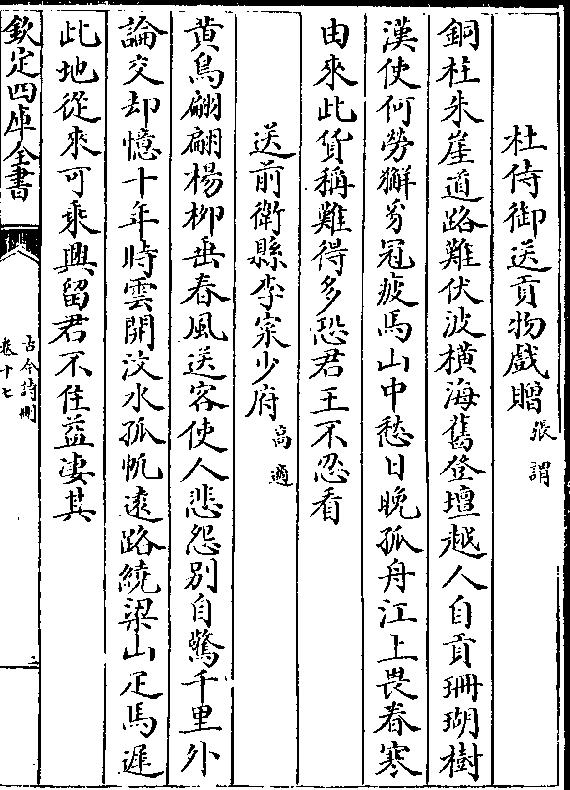 杜侍御送貢物戲贈 張謂
銅柱朱崖道路難伏波橫海舊登壇越人自貢珊瑚樹
漢使何勞獬豸冠疲馬山中愁日晚孤舟江上畏春寒
由來此貨稱難得多恐君王不忍看
送前衛縣李宷少府 高適
黃鳥翩翩楊柳垂春風送客使人悲怨别自驚千里外
論交却憶十年時雲開汶水孤帆遠路繞梁山疋馬遲
此地從來可乘興留君不住益淒其
欽定四庫全書
古今詩刪
卷十七
二